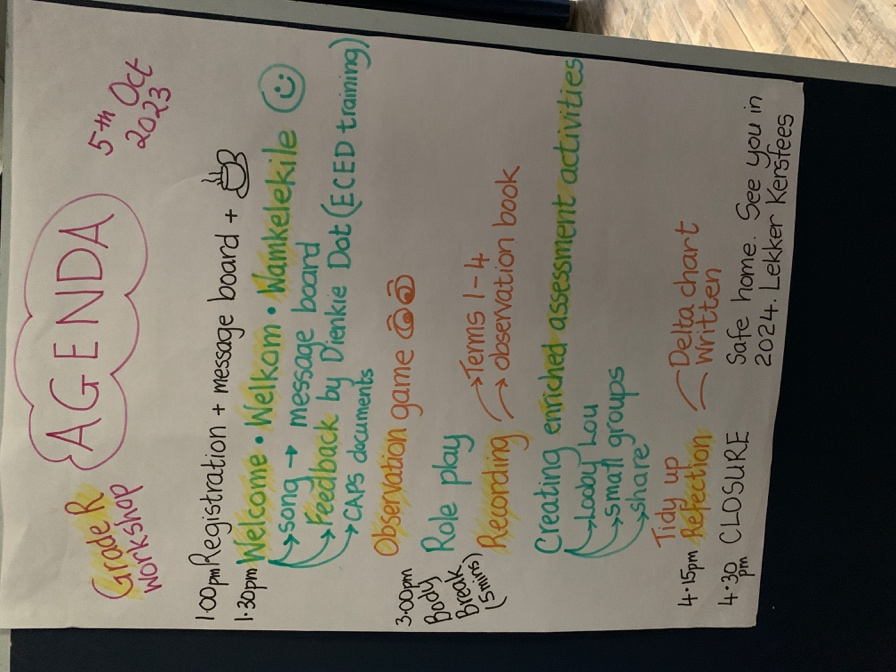 Grade R
workshop
AGENDA
5th Oct
2023
1:00pm Registration + message board +
1.30pm Welcome • Welkom • Wamkelekile
→ song → message board
→ Feedback by Dienkie Dot (ECED training)
→ CAPS documents
Observation game
3:00pm
Body
Break
(5mins)
Role play
Recording → Terms 1-4
→ observation book
Creating enriched assessment activities
→ Looby Lou
→ small groups
→ share
Tidy up
4.15pm Reflection Delta chart
Written
4.30 pm CLOSURE Safe home. See you in
2024. Lekker Kersfees